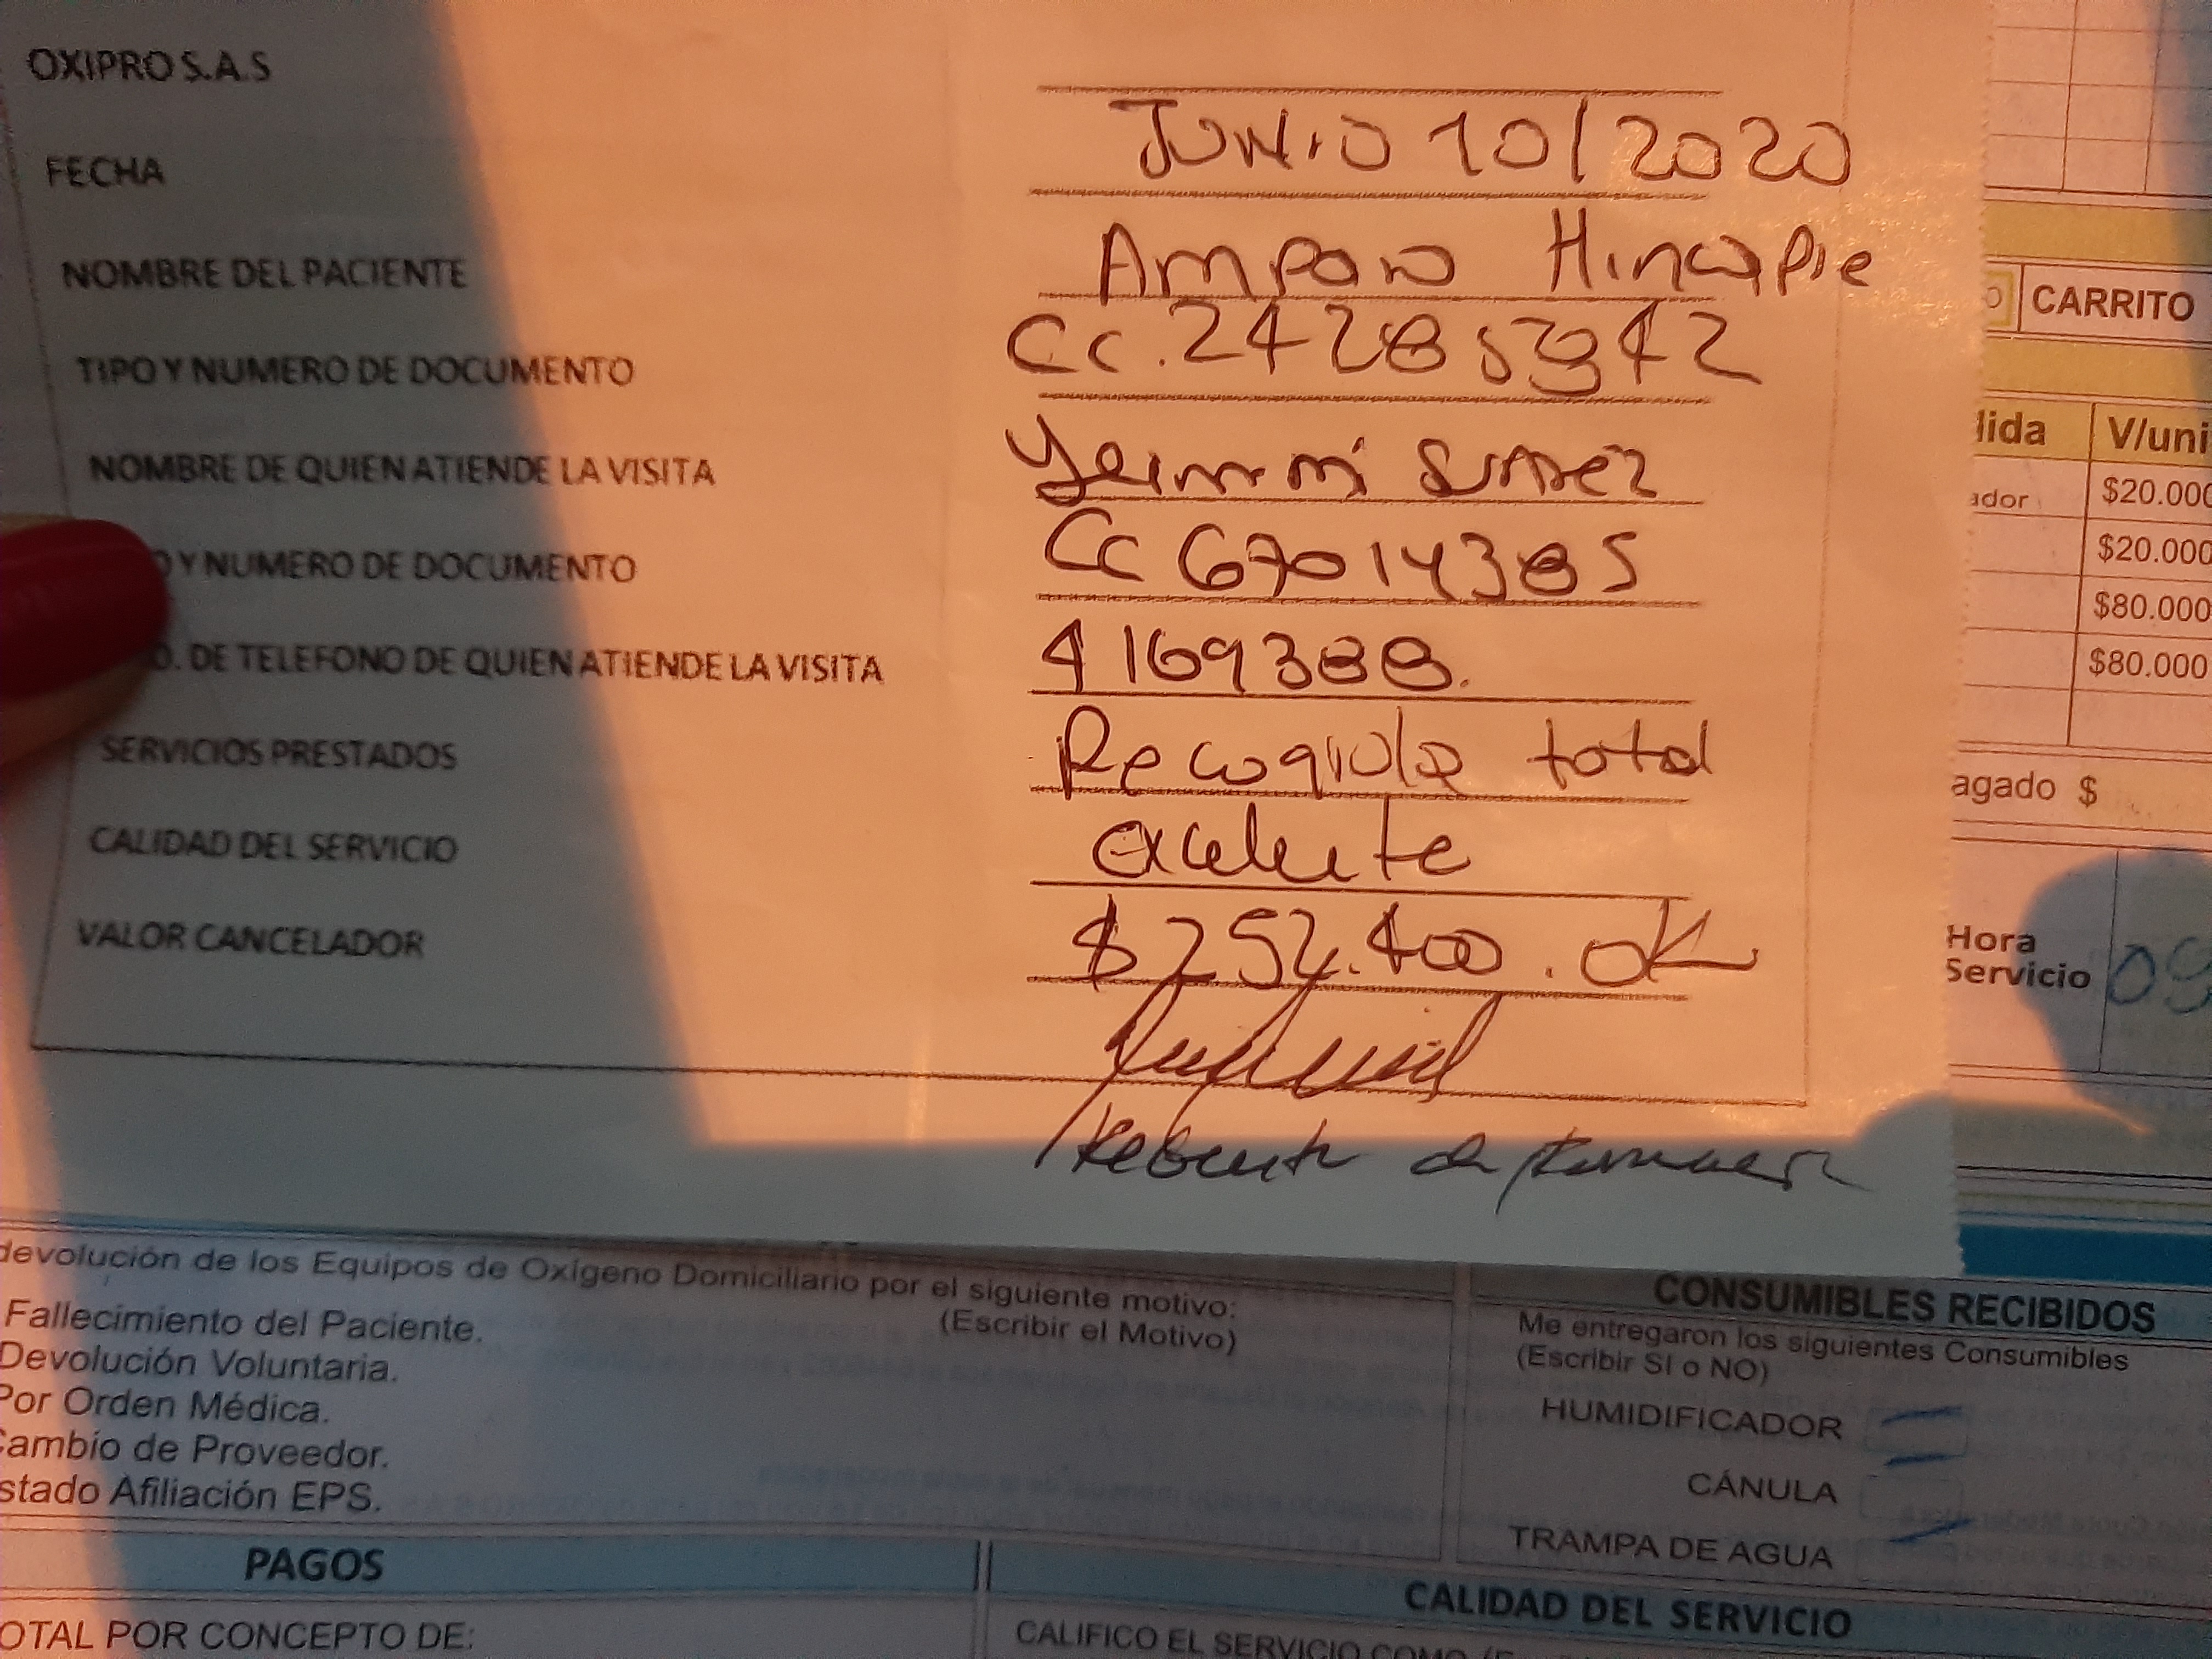 OXIPRO S.A.S
FECHA Junio 10/2020
NOMBRE DEL PACIENTE Amparo Hincapie
TIPO Y NUMERO DE DOCUMENTO Cc.
NOMBRE DE QUIEN ATIENDE LA VISITA
Y NUMERO DE DOCUMENTO Cc 67014385
O. DE TELEFONO DE QUIEN ATIENDE LA VISITA 4169388.
SERVICIOS PRESTADOS Recogida total
CALIDAD DEL SERVICIO excelente
VALOR CANCELADOR $252.400. OK
CARRITO
lida V/uni
ador $20.000
$20.000
$80.000
$80.000
agado $
Hora
Servicio 09
devolución de los Equipos de Oxígeno Domiciliario por el siguiente motivo:
(Escribir el Motivo)
Fallecimiento del Paciente.
Devolución Voluntaria.
Por Orden Médica.
Cambio de Proveedor.
stado Afiliación EPS.
CONSUMIBLES RECIBIDOS
Me entregaron los siguientes Consumibles
(Escribir SI o NO)
HUMIDIFICADOR
CÁNULA
TRAMPA DE AGUA
PAGOS
OTAL POR CONCEPTO DE:
CALIDAD DEL SERVICIO
CALIFICO EL SERVICIO COMO